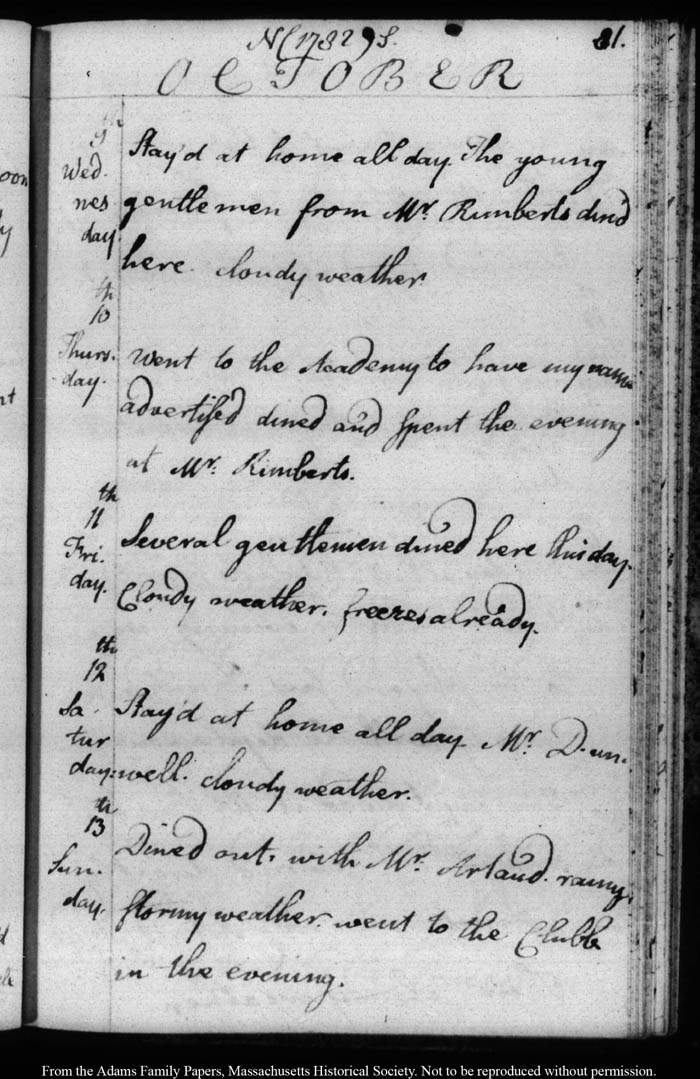 N(1782)S. 81.
OCTOBER
9th
Wed-
nes
day
Stay'd at home all day. The young
gentlemen from Mr. Rimberts dined
here. cloudy weather.
10th
Thurs.
day.
Went to the Academy to have my name
advertised dined and spent the evening
at Mr. Rimberts.
11th
Fri.
day.
Several gentlemen dined here this day.
Cloudy weather. freezes already.
12th
Sa-
tur
day:
Stay'd at home all day. Mr. D. un-
well. cloudy weather.
13th
Sun.
day.
Dined out, with Mr. Artaud. rainy
stormy weather. went to the Clubb
in the evening.
From the Adams Family Papers, Massachusetts Historical Society. Not to be reproduced without permission.